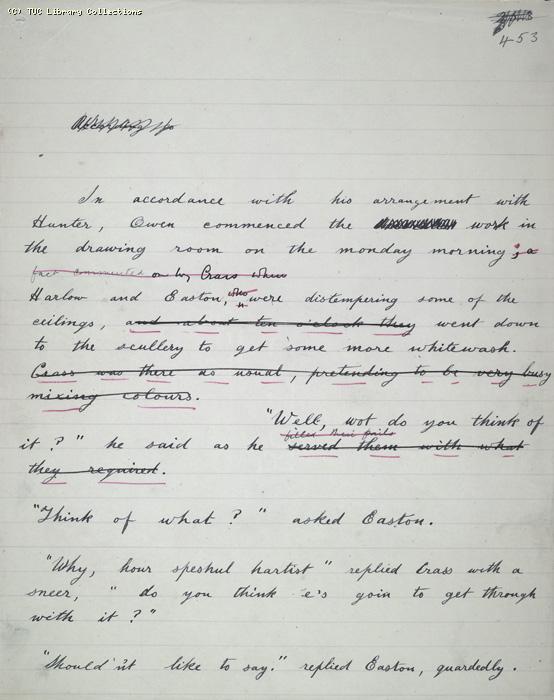 (C) TUC Library Collections
453
In accordance with his arrangement with
Hunter, Owen commenced the work in
the drawing room on the monday morning; a
fact commented on by Crass when
Harlow and Easton, who were distempering some of the
ceilings, and about ten o'clock they went down
to the scullery to get some more whitewash.
Crass was there as usual, pretending to be very busy
mixing colours.
"Well, wot do you think of
filled their pails
it?" he said as he served them with what
they required.
"Think of what?" asked Easton.
"Why, hour speshul hartist" replied Crass with a
sneer, "do you think 'e's goin to get through
with it?"
"Should'nt like to say." replied Easton, guardedly.